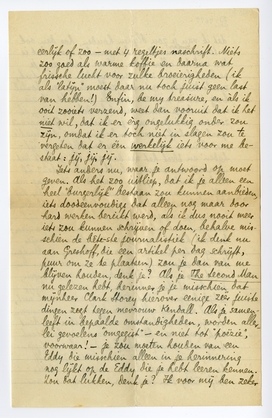 eerlijk of zoo – met 4 regeltjes naschrift. Niets
zoo goed als warme koffie en daarna wat
frissche lucht voor zulke droevigheden (ik
als 'latijn' moest daar nu toch juist geen last
van hebben!) Enfin, be my treasure, en als ik
ooit zooiets verzend, weet dan vooruit dat ik het
niet wil, dat ik er erg ongelukkig onder zou
zijn, omdat ik er toch niet in slagen zou te
vergeten dat er één werkelijk iets voor me be-
staat: jij, jij, jij.
Iets anders nu, waar je antwoord op moet
geven. Als het zoo uitliep, dat ik je alleen een
heel 'burgerlijk' bestaan zou kunnen aanbieden,
iets doodeenvoudig dat alleen nog maar door
hard werken bereikt werd, als ik dus nooit meer
iets zou kunnen schrijven of doen, behalve mis-
schien de journalistiek (ik denk nu
aan Greshoff, die een artikel per dag schrijft,
puur om ze te plaatsen) zou je dan van me
blijven houden, denk je? Als je The Second Man
nu gelezen hebt, herinner je je misschien dat
mijnheer Clark Storey hierover eenige zeer juiste
dingen zegt tegen mevrouw Kendall. Als je samen
leeft in bepaalde omstandigheden, worden aller-
lei gevoelens omgezet – en niet tot 'poëzie',
voorwaar! – je zou moeten houden van een
Eddy die misschien alleen in herinnering
nog lijkt op de Eddy die je hebt leeren kennen.
Zou dat lukken, denk je? Ik voor mij ben zeker